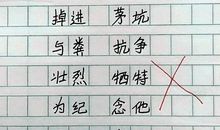 掉进 茅坑
与粪 抗争
壮烈 牺特
为纪 念他